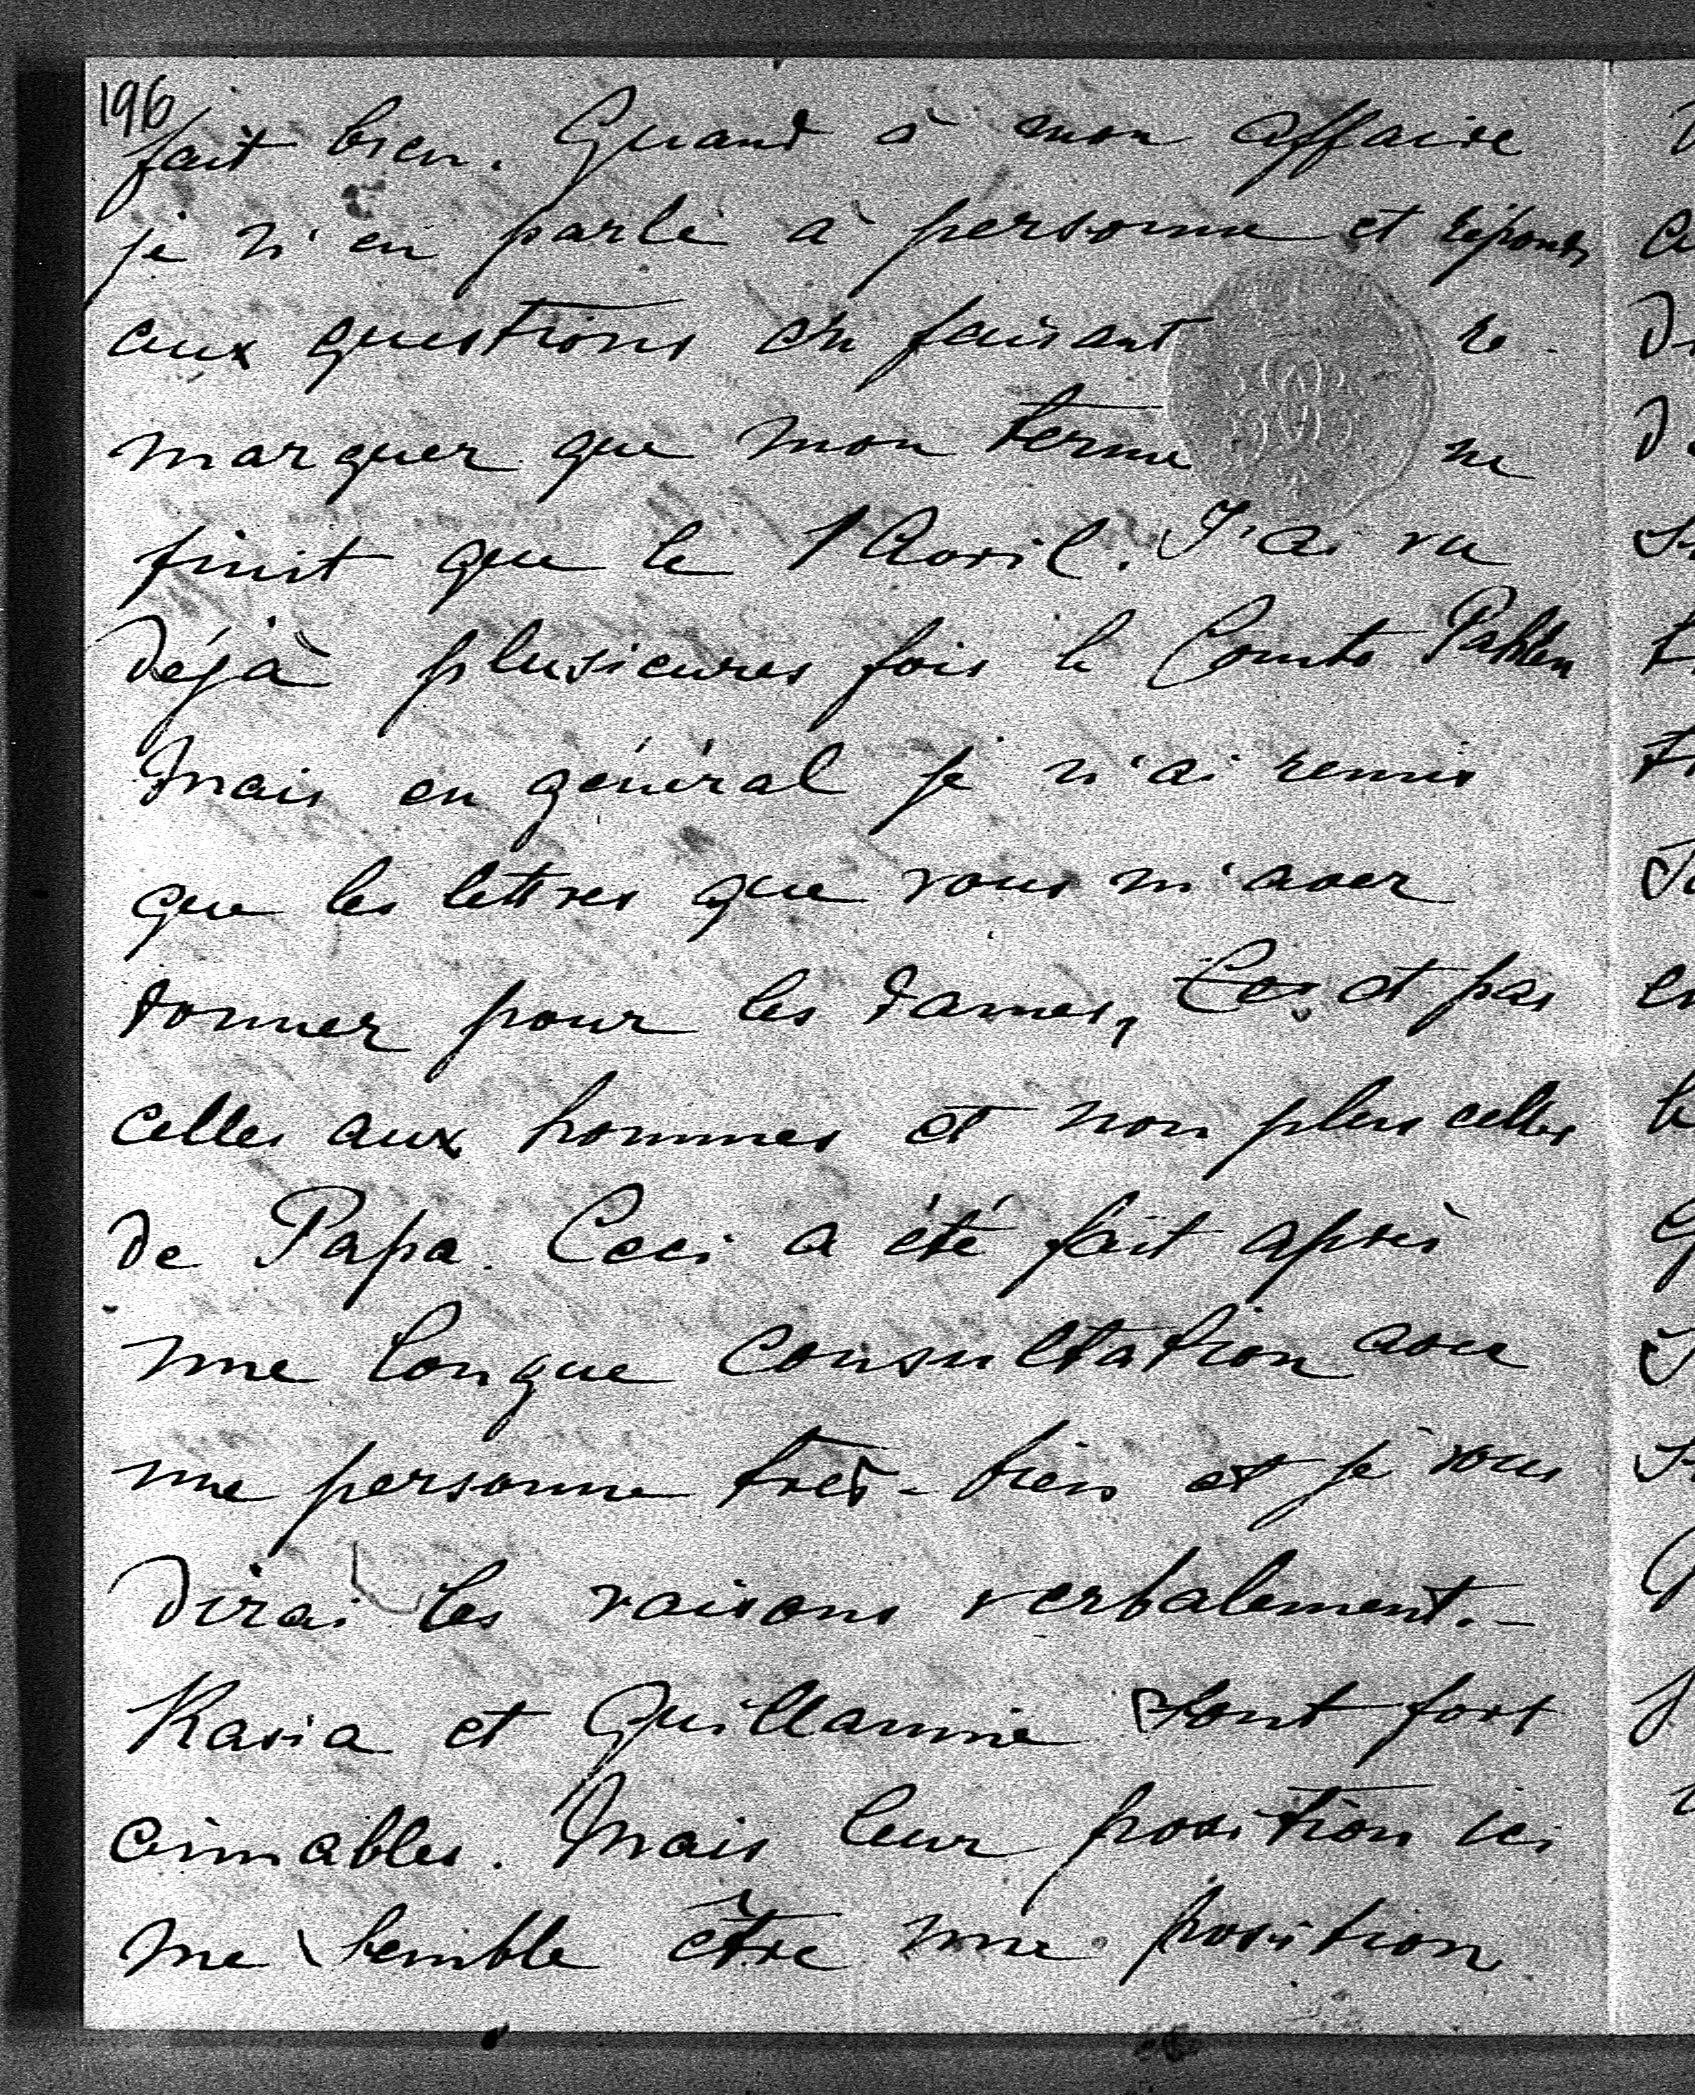 196
fait bien. Quand à mon affaire
je n'en parle à personne et réponds
aux questions en faisant re-
marquer que mon terme ne
finit que le 1 Avril. J'ai vu
déjà plusieures fois le Comte Pahlen
Mais en général je n'ai remis
que les lettres que vous m'avez
donner pour les dames, et pas
celles aux hommes et non plus celles
de Papa. Ceci a été fait après
une longue consultation avec
une personne très-bien et je vous
dirai les raisons verbalement.-
Kasia et Guillaume sont fort
aimables. Mais leur position ici
me semble être une position